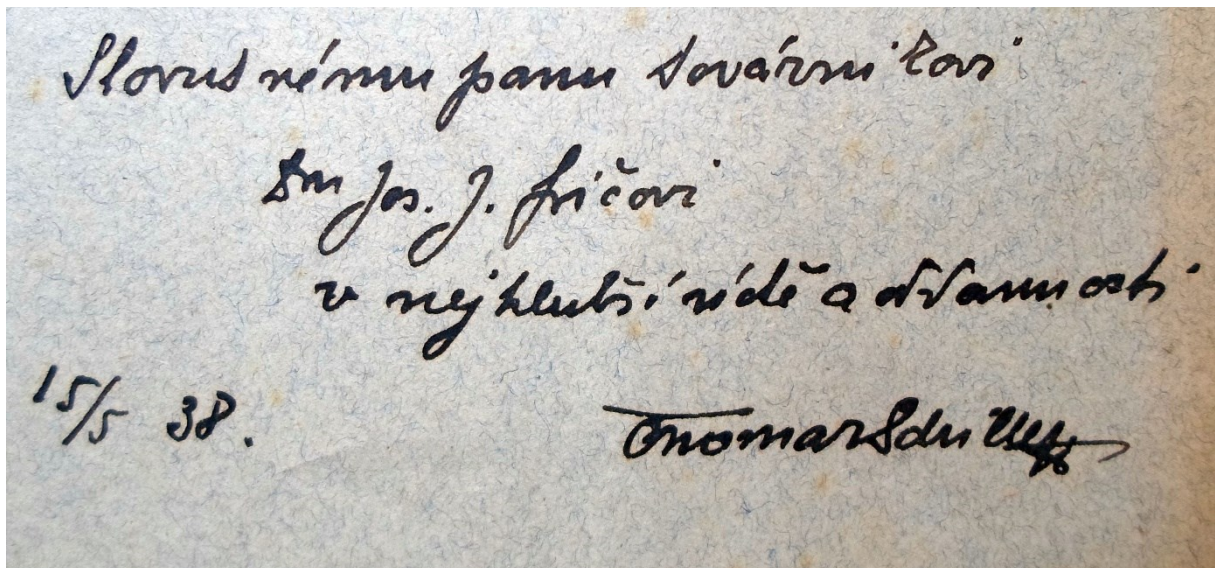 Slovutnému panu továrníkovi
Dru Jos. J. Fričovi
v nejhlubší úctě a oddanosti
15/5 38.
Otomar Schiller